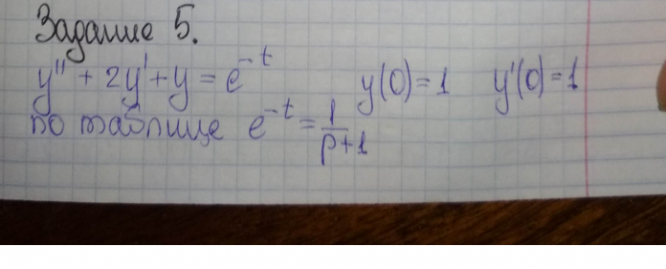 Задание 5.
y'' + 2y' + y = e^{-t} y(0) = 1 y'(0) = 1
по таблице e^{-t} = 1/(p+1)